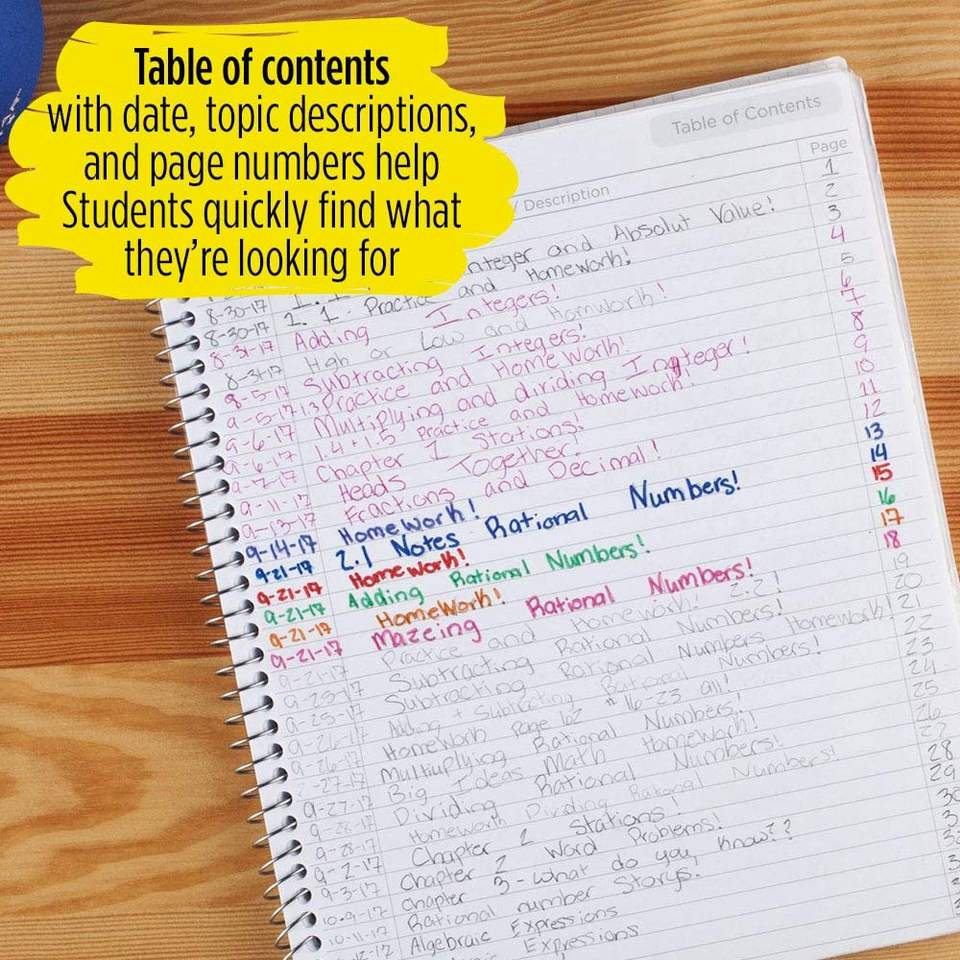 Table of contents
with date, topic descriptions,
and page numbers help
Students quickly find what
they're looking for
Table of Contents
/ Description Page
1
nteger and Absolut Value! 2
8-30-17 1.1 Practice and Homework! 3
8-30-17 Adding Integers! 4
8-31-17 High or Low and Homwork! 5
8-31-17 Subtracting Integers! 6
9-5-17 1.3 Practice and Homework! 7
9-5-17 Multiplying and dividing Integer! 8
9-6-17 1.4+1.5 Practice and Homework! 9
9-6-17 Chapter 1 Stations! 10
9-7-17 Heads Together! 11
9-11-17 Fractions and Decimal! 12
9-13-17 Homework! 13
9-14-17 2.1 Notes Rational Numbers! 14
9-21-17 Homework! 15
9-21-17 Adding Rational Numbers! 16
9-21-17 Homework! 17
9-21-17 Mazeing Rational Numbers! 18
9-21-17 Practice and Homework! 2.2! 19
9-21-17 Subtracting Rational Numbers! 20
9-25-17 Subtracting Rational Numpers Homework! 21
9-25-17 Adding + Subtracting Rational Numbers! 22
9-26-17 Homework Page 62 # 16-23 all! 23
9-26-17 Multiuplying Rational Numbers! 24
9-27-17 Big Ideas Math Homework! 25
9-27-17 Dividing Rational Numbers! 26
9-28-17 Homework Dividing Rational Numbers! 27
9-28-17 Chapter 2 Stations! 28
9-2-17 Chapter 2 Word Problems! 29
9-3-17 Chapter 3-what do you know??
10-9-17 Rational number Storys!
10-11-17 Algebraic Expressions
Expressions